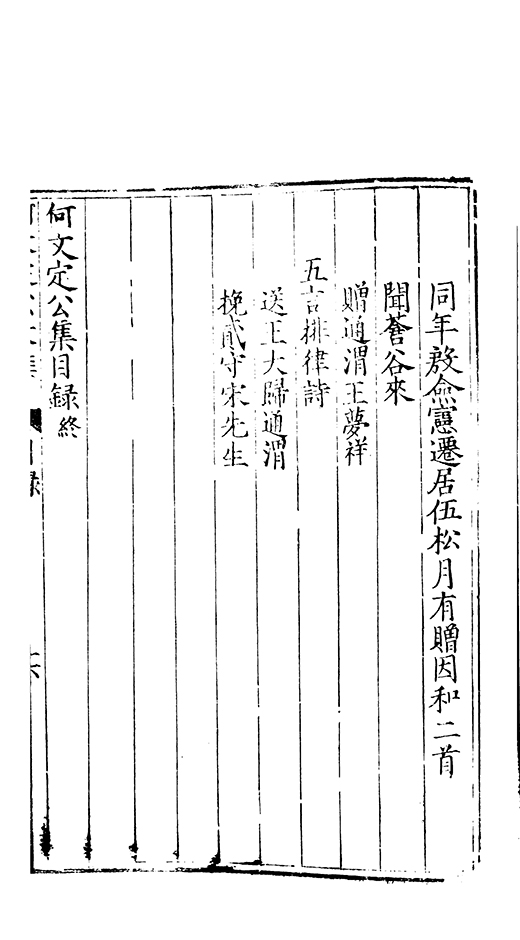 同年敖僉憲遷居伍松月有贈因和二首
聞蒼谷來
贈通渭王夢祥
五言排律詩
送王大歸通渭
挽貳守宋先生
何文定公集目録終